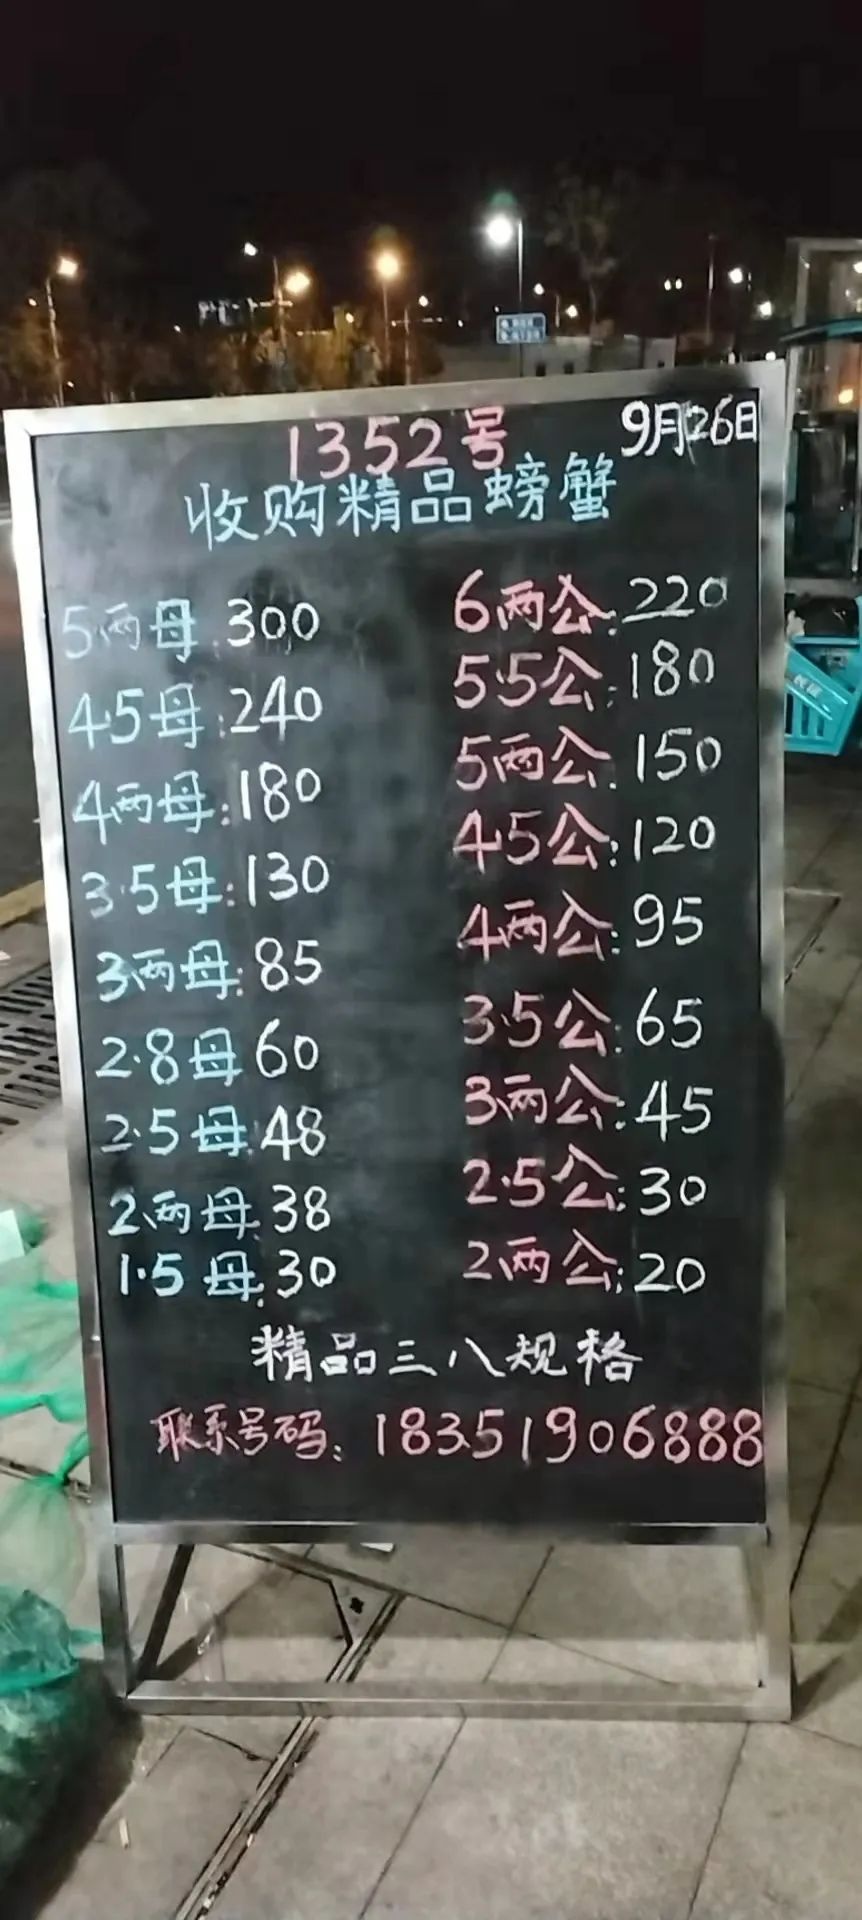 1352号
9月26日
收购精品螃蟹
5两母:300
4.5母:240
4两母:180
3.5母:130
3两母:85
2.8母60
2.5母:48
2两母:38
1.5母:30
6两公:220
5.5公:180
5两公:150
4.5公:120
4两公:95
3.5公:65
3两公:45
2.5公:30
2两公:20
精品三八规格
联系号码:18351906888